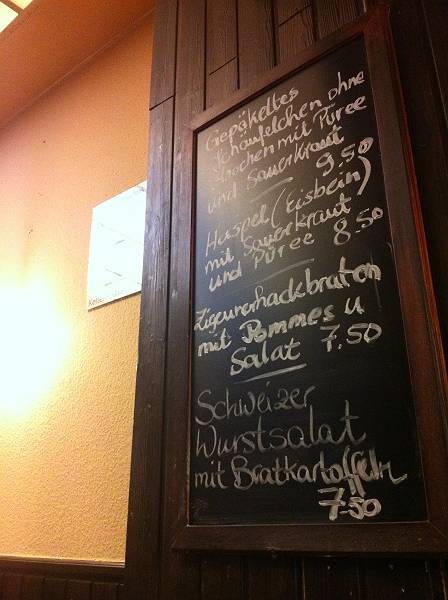 Gepökeltes
Schäufelchen ohne
Knochen mit Püree
und Sauerkraut
9.50
Haspel (Eisbein)
mit Sauerkraut
und Püree 8.50
Zigeunerhackbraten
mit Pommes u
Salat 7.50
Schweizer
Wurstsalat
mit Bratkartoffeln
7.50